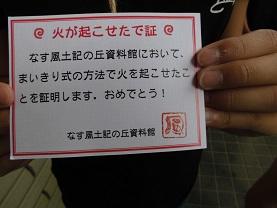 @ 火が起こせたで証 @
なす風土記の丘資料館において、
まいきり式の方法で火を起こせたこ
とを証明します。おめでとう！
なす風土記の丘資料館